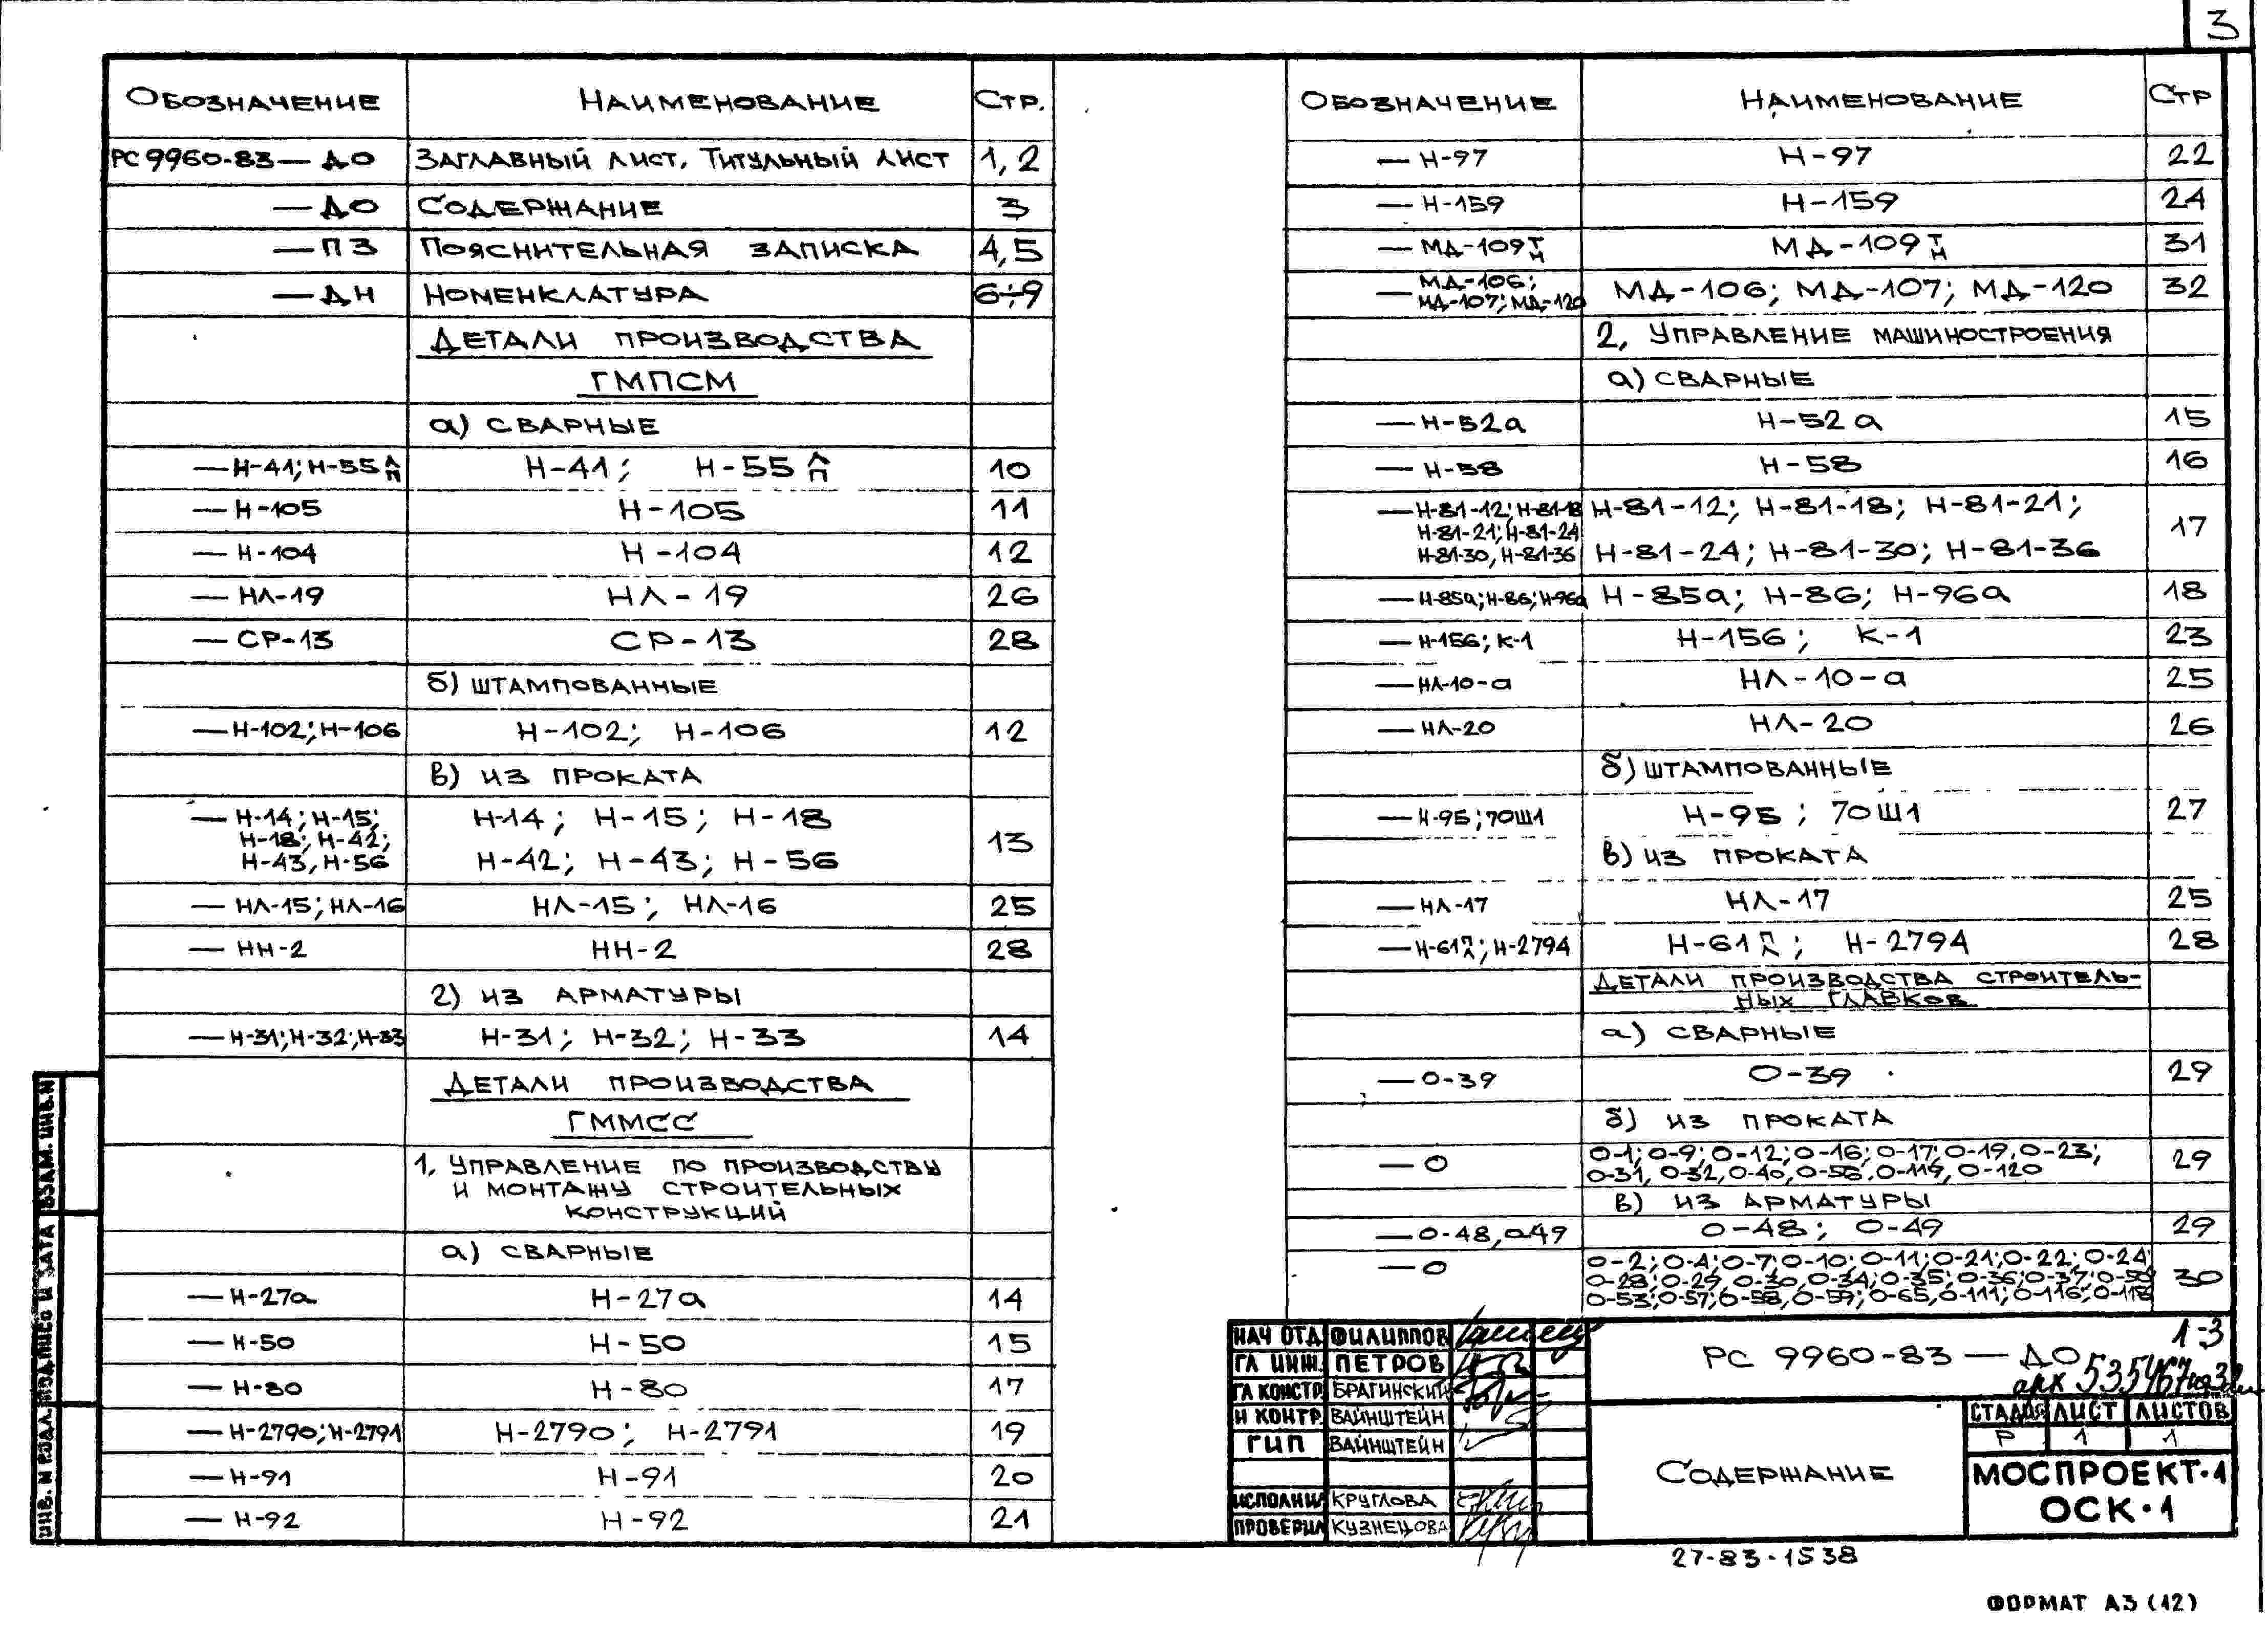 3
Обозначение Наименование Стр.
РС 9960-83 — ДО Заглавный лист. Титульный лист 1, 2
— ДО Содержание 3
— ПЗ Пояснительная записка 4, 5
— ДН Номенклатура 6÷9
Детали производства
ГМПСМ
а) сварные
— Н-41; Н-55 Л/П Н-41; Н-55 Л/П 10
— Н-105 Н-105 11
— Н-104 Н-104 12
— НЛ-19 НЛ-19 26
— СР-13 СР-13 28
б) штампованные
— Н-102; Н-106 Н-102; Н-106 12
в) из проката
— Н-14; Н-15; Н-14; Н-15; Н-18
Н-18; Н-42; 13
Н-43, Н-56 Н-42; Н-43; Н-56
— НЛ-15; НЛ-16 НЛ-15; НЛ-16 25
— НН-2 НН-2 28
г) из арматуры
— Н-31; Н-32; Н-33 Н-31; Н-32; Н-33 14
Детали производства
ГММСС
1, Управление по производству
и монтажу строительных
конструкций
а) сварные
— Н-27а Н-27а 14
— Н-50 Н-50 15
— Н-80 Н-80 17
— Н-2790; Н-2791 Н-2790; Н-2791 19
— Н-91 Н-91 20
— Н-92 Н-92 21
Обозначение Наименование Стр
— Н-97 Н-97 22
— Н-159 Н-159 24
— МД-109 Т/Н МД-109 Т/Н 31
— МД-106;
МД-107; МД-120 МД-106; МД-107; МД-120 32
2, Управление машиностроения
а) сварные
— Н-52а Н-52а 15
— Н-58 Н-58 16
— Н-81-12; Н-81-18 Н-81-12; Н-81-18; Н-81-21;
Н-81-21; Н-81-24 17
Н-81-30, Н-81-36 Н-81-24; Н-81-30; Н-81-36
— Н-85а; Н-86; Н-96а Н-85а; Н-86; Н-96а 18
— Н-156; К-1 Н-156; К-1 23
— НЛ-10-а НЛ-10-а 25
— НЛ-20 НЛ-20 26
б) штампованные
— Н-95; 70Ш1 Н-95; 70Ш1 27
в) из проката
— НЛ-17 НЛ-17 25
— Н-61 П/Л; Н-2794 Н-61 П/Л; Н-2794 28
Детали производства строитель-
ных главков
а) сварные
— О-39 О-39 29
б) из проката
— О О-1; О-9; О-12; О-16; О-17; О-19, О-23; 29
О-31, О-32, О-40, О-56, О-119, О-120
в) из арматуры
— О-48, О-49 О-48; О-49 29
— О О-2; О-4; О-7; О-10; О-11; О-21; О-22; О-24 30
О-28; О-29, О-30, О-34; О-35; О-36; О-37; О-50
О-53; О-57; О-58, О-59; О-65, О-111; О-116; О-118
Нач отд Филиппов
Гл инж. Петров
Гл констр Брагинский
Н контр. Вайнштейн
ГИП Вайнштейн
Исполнил Круглова
Проверил Кузнецова
РС 9960-83 — ДО 1-3
арх 535467
Содержание
Стадия Лист Листов
Р 1 1
МОСПРОЕКТ-1
ОСК-1
27-83-1538
Формат А3 (12)
Взам. инв. N
Подпись и дата
Инв. N подл.